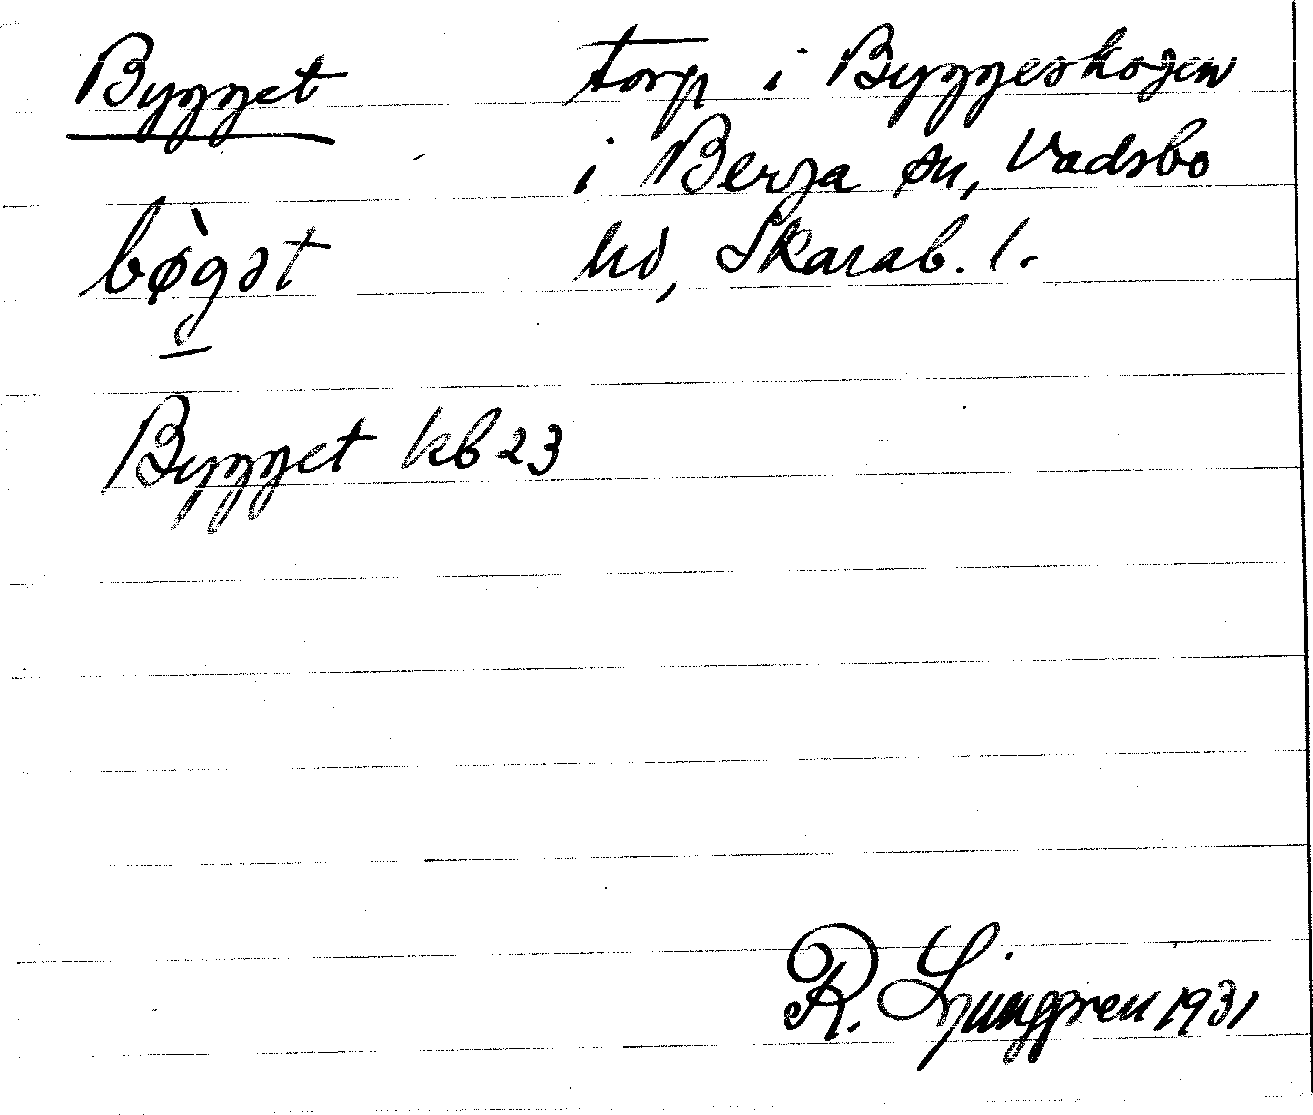 Bygget
torp i Byggeskogen
i Berga sn, Vadsbo
hd, Skarab. l.
bø̀gət
Bygget kb 23
R. Ljunggren 1931